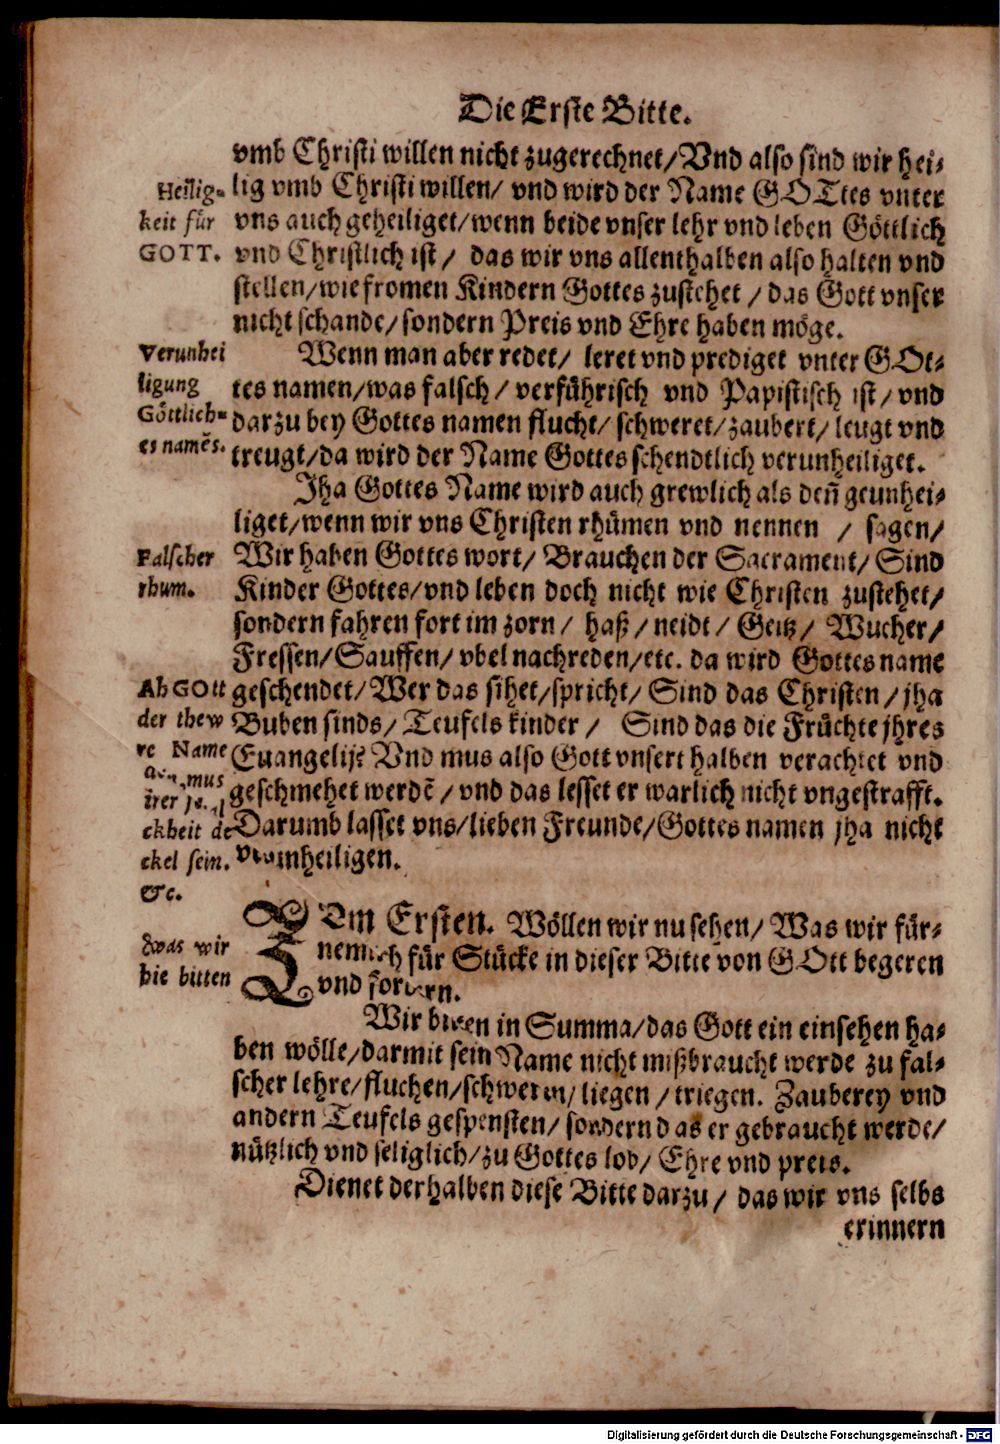 Die Erste Bitte.
vmb Christi willen nicht zugerechnet/Vnd also sind wir hei-
lig vmb Christi willen/ vnd wird der Name GOTtes vnter
vns auch geheiliget/wenn beide vnser lehr vnd leben Göttlich
vnd Christlich ist/ das wir vns allenthalben also halten vnd
stellen/wie fromen Kindern Gottes zustehet/das Gott vnser
nicht schande/sondern Preis vnd Ehre haben möge.
Heilig-
keit für
GOTT.
Wenn man aber redet/ leret vnd prediget vnter GOt-
tes namen/was falsch/ verführisch vnd Papistisch ist/ vnd
darzu bey Gottes namen flucht/ schweret/zaubert/ leugt vnd
treugt/da wird der Name Gottes schendtlich verunheiliget.
Verunhei
ligung
Göttlich-
es namẽs.
Jha Gottes Name wird auch grewlich als deñ geunhei-
liget/wenn wir vns Christen rhümen vnd nennen / sagen/
Wir haben Gottes wort/ Brauchen der Sacrament/ Sind
Kinder Gottes/vnd leben doch nicht wie Christen zustehet/
sondern fahren fort im zorn/ haß/neidt/ Geitz/ Wucher/
Fressen/Sauffen/ vbel nachreden/etc. da wird Gottes name
geschendet/Wer das sihet/spricht/ Sind das Christen/jha
Buben sinds/ Teufels kinder/ Sind das die Früchte jhres
Euangelij? Vnd mus also Gott vnsert halben verachtet vnd
geschmehet werdẽ/ vnd das lesset er warlich nicht vngestrafft.
Darumb lasset vns/lieben Freunde/Gottes namen jha nicht
verunheiligen.
Falscher
rhum.
Ab GOtt
der thew
re Name
mus
ckheit de
ckel sein.
&c.
ZVm Ersten. Wöllen wir nu sehen/ Was wir für-
nemlich für Stücke in dieser Bitte von GOtt begeren
vnd fordern.
was wir
hie bitten
Wir bitten in Summa/das Gott ein einsehen ha-
ben wölle/darmit sein Name nicht mißbraucht werde zu fal-
scher lehre/fluchen/schweren/liegen/triegen. Zauberey vnd
andern Teufels gespensten/ sondern das er gebraucht werde/
nützlich vnd seliglich/zu Gottes lob/ Ehre vnd preis.
Dienet derhalben diese Bitte darzu/ das wir vns selbs
erinnern
Digitalisierung gefördert durch die Deutsche Forschungsgemeinschaft - DFG